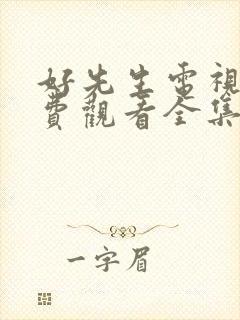 好先生電視
費觀看全集
一字眉